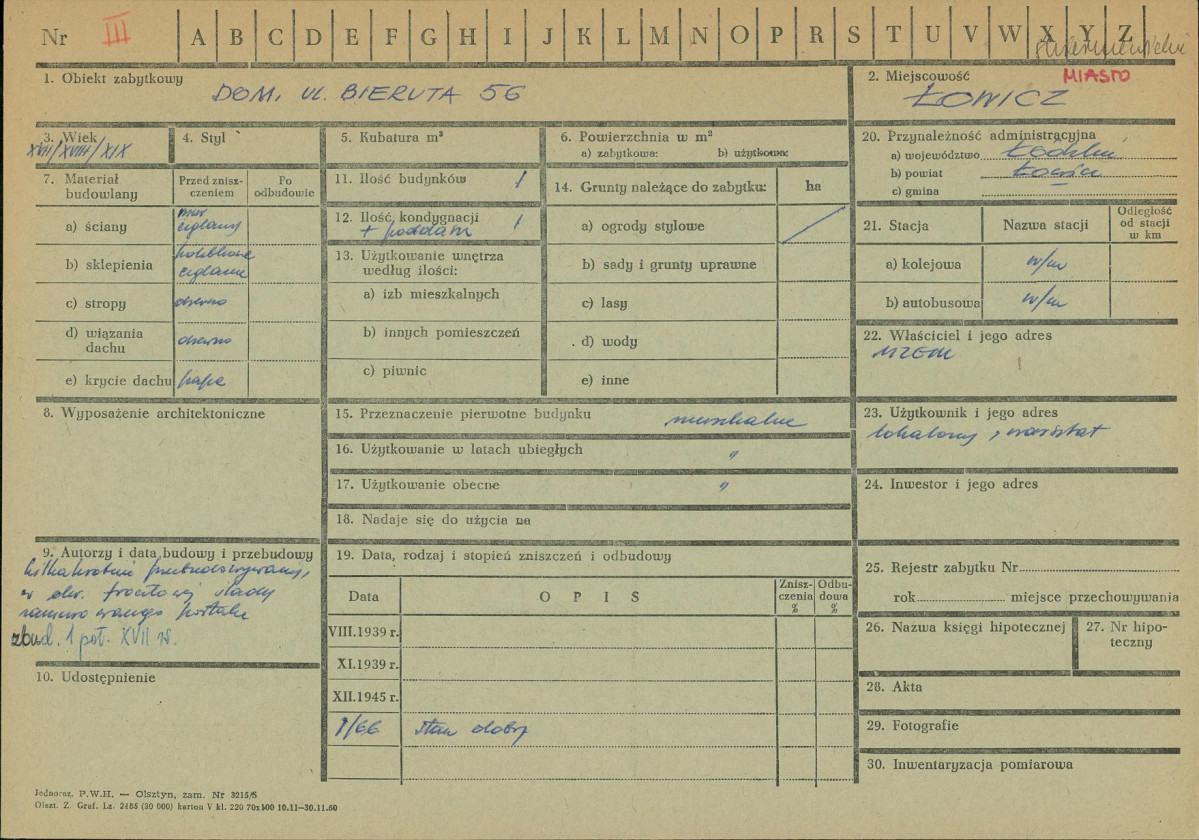 Nr III A B C D E F G H I J K L M N O P R S T U V W X Y Z
skierniewickie
1. Obiekt zabytkowy
DOM, ul. BIERUTA 56
2. Miejscowość
MIASTO
ŁOWICZ
3. Wiek
XVII/XVIII/XIX
4. Styl
5. Kubatura m³
6. Powierzchnia w m²
a) zabytkowa: b) użytkowa:
20. Przynależność administracyjna
a) województwo Łódzkie
b) powiat Łowicz
c) gmina
7. Materiał
budowlany
Przed znisz-
czeniem
Po
odbudowie
a) ściany
mur
ceglany
b) sklepienia
kolebkowe
ceglane
c) stropy drewno
d) wiązania
dachu
drewno
e) krycie dachu papa
11. Ilość budynków 1
12. Ilość kondygnacji 1
+ poddasze
13. Użytkowanie wnętrza
według ilości:
a) izb mieszkalnych
b) innych pomieszczeń
c) piwnic
14. Grunty należące do zabytku: ha
a) ogrody stylowe
b) sady i grunty uprawne
c) lasy
d) wody
e) inne
21. Stacja
Nazwa stacji
Odległość
od stacji
w km
a) kolejowa w/m
b) autobusowa w/m
22. Właściciel i jego adres
MZBM
8. Wyposażenie architektoniczne
15. Przeznaczenie pierwotne budynku mieszkalne
16. Użytkowanie w latach ubiegłych "
17. Użytkowanie obecne "
18. Nadaje się do użycia na
23. Użytkownik i jego adres
lokatorzy, warsztat
24. Inwestor i jego adres
9. Autorzy i data budowy i przebudowy
kilkakrotnie przebudowywany,
w elew. frontowej ślady
zamurowanego portalu
zbud. 1 poł. XVII w.
10. Udostępnienie
19. Data, rodzaj i stopień zniszczeń i odbudowy
Data
OPIS
Znisz-
czenia
%
Odbu-
dowa
%
VIII.1939 r.
XI.1939 r.
XII.1945 r.
Stan dobry
25. Rejestr zabytku Nr
rok miejsce przechowywania
26. Nazwa księgi hipotecznej
27. Nr hipo-
teczny
28. Akta
29. Fotografie
30. Inwentaryzacja pomiarowa
Jednoraz. P.W.H. — Olsztyn, zam. Nr 3215/S
Olszt. Z. Graf. Lz. 2485 (30 000) karton V kl. 220 70x100 10.11—30.11.60